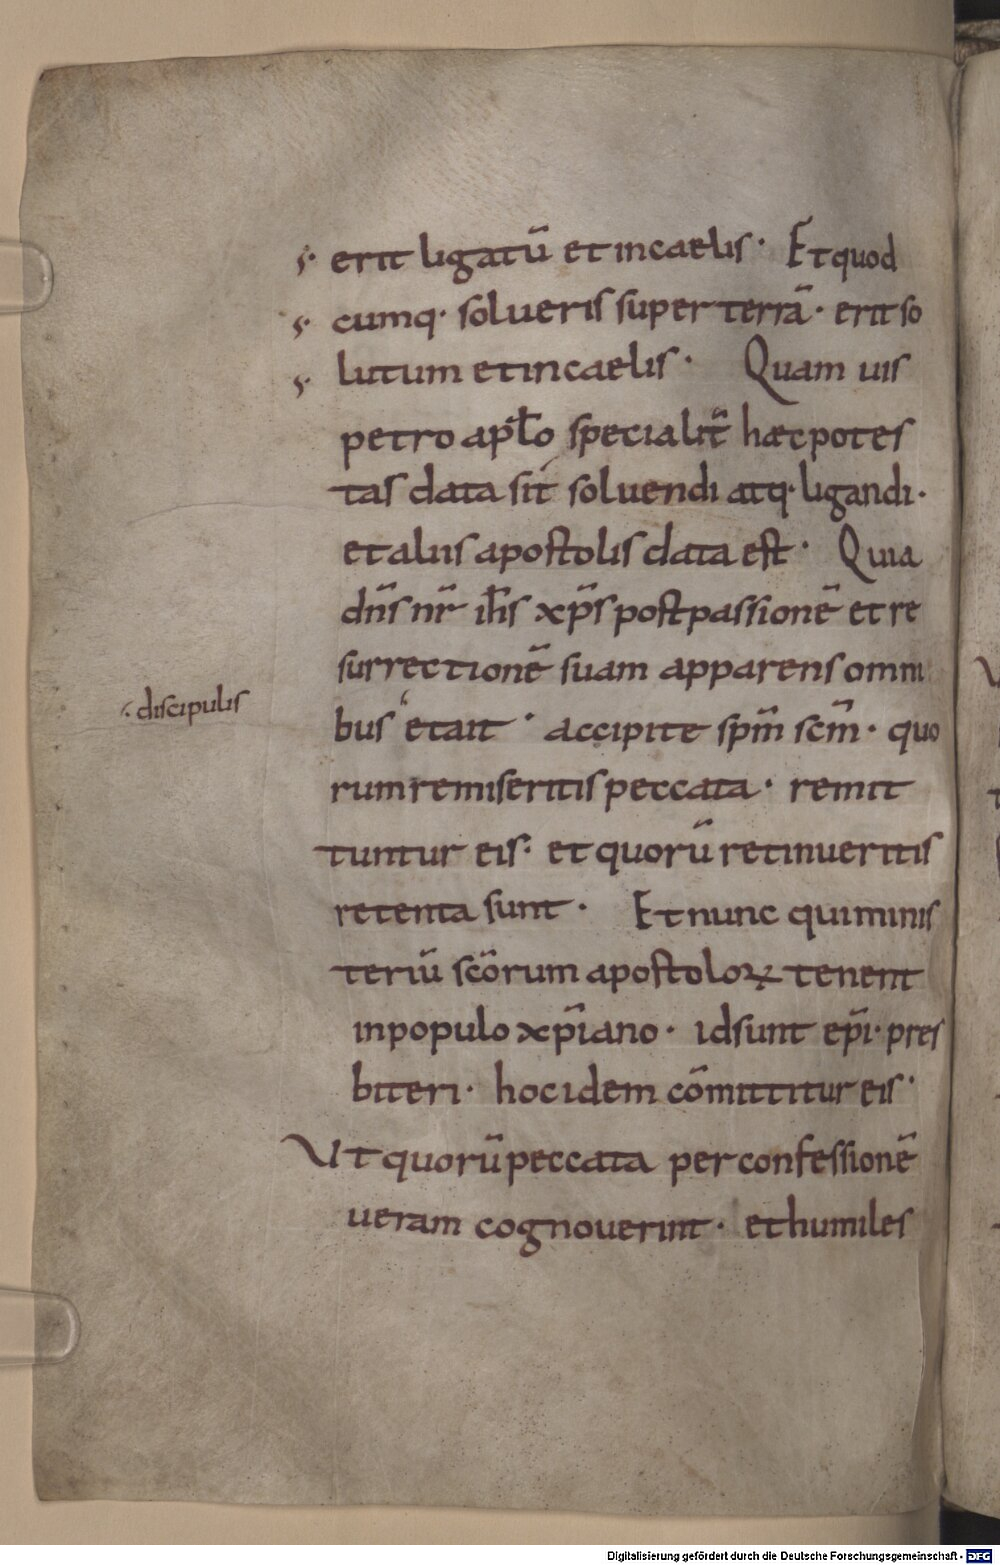 erit ligatū et in caelis· Et quod
cumq· solueris super terrā· erit so
lutum et in caelis· Quam uis
petro apl̅o specialit̅ haec potes
tas data sit soluendi atq· ligandi·
et aliis apostolis data est· Quia
dn̅s nr̅ ih̅s xp̅s post passionē et re
surrectionē suam apparens omni
bus et ait· accipite sp̅m sc̅m· quo
rum remiseritis peccata· remit
tuntur eis· et quorū retinueritis
retenta sunt· Et nunc qui minis
teriū sc̅orum apostoloꝝ tenent
in populo xp̅iano· id sunt ep̅i· pres
biteri· hoc idem cōmittitur eis·
Ut quorū peccata per confessionē
ueram cognouerint· et humiles
·discipulis
Digitalisierung gefördert durch die Deutsche Forschungsgemeinschaft - DFG